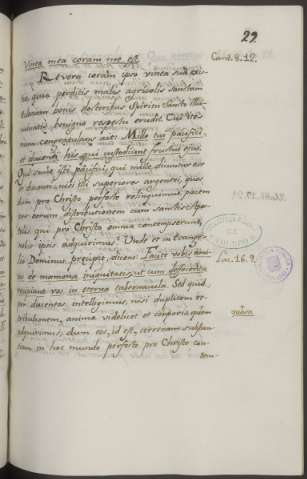 22
Vinea mea coram me est.
Cant. 8. 12.
Revera coram ipso vinea sua
quia perditis malis agricolis
bonis doctoribus Spiritu Sancto
benigno respectu
congratulans ait: Mille tui pacifici,
et ducenti his, qui custodiunt fructus eius.
Qui sunt isti pacifici, qui mille dicuntur
ducenti, nisi illi superiores argentei, qui
dum pro Christo perfecte relinquimus pacem
distributionem cum sanctis
qui pro Christo omnia contempserunt,
nobis ipsis adquirimus? Unde et in Evange-
lio Dominus precipit, dicens: Facite vobis ami-
cos de mamona iniquitatis, ut cum defeceritis
recipiant vos in eterna tabernacula. Sed quid
Luc. 16. 9.
in ducentos intelligimus, nisi duplicem re-
tributionem, animæ videlicet et corporis
quam
adquirimus; dum eos, id est, terrenam substan-
tiam in hoc mundo perfecte pro Christo con-